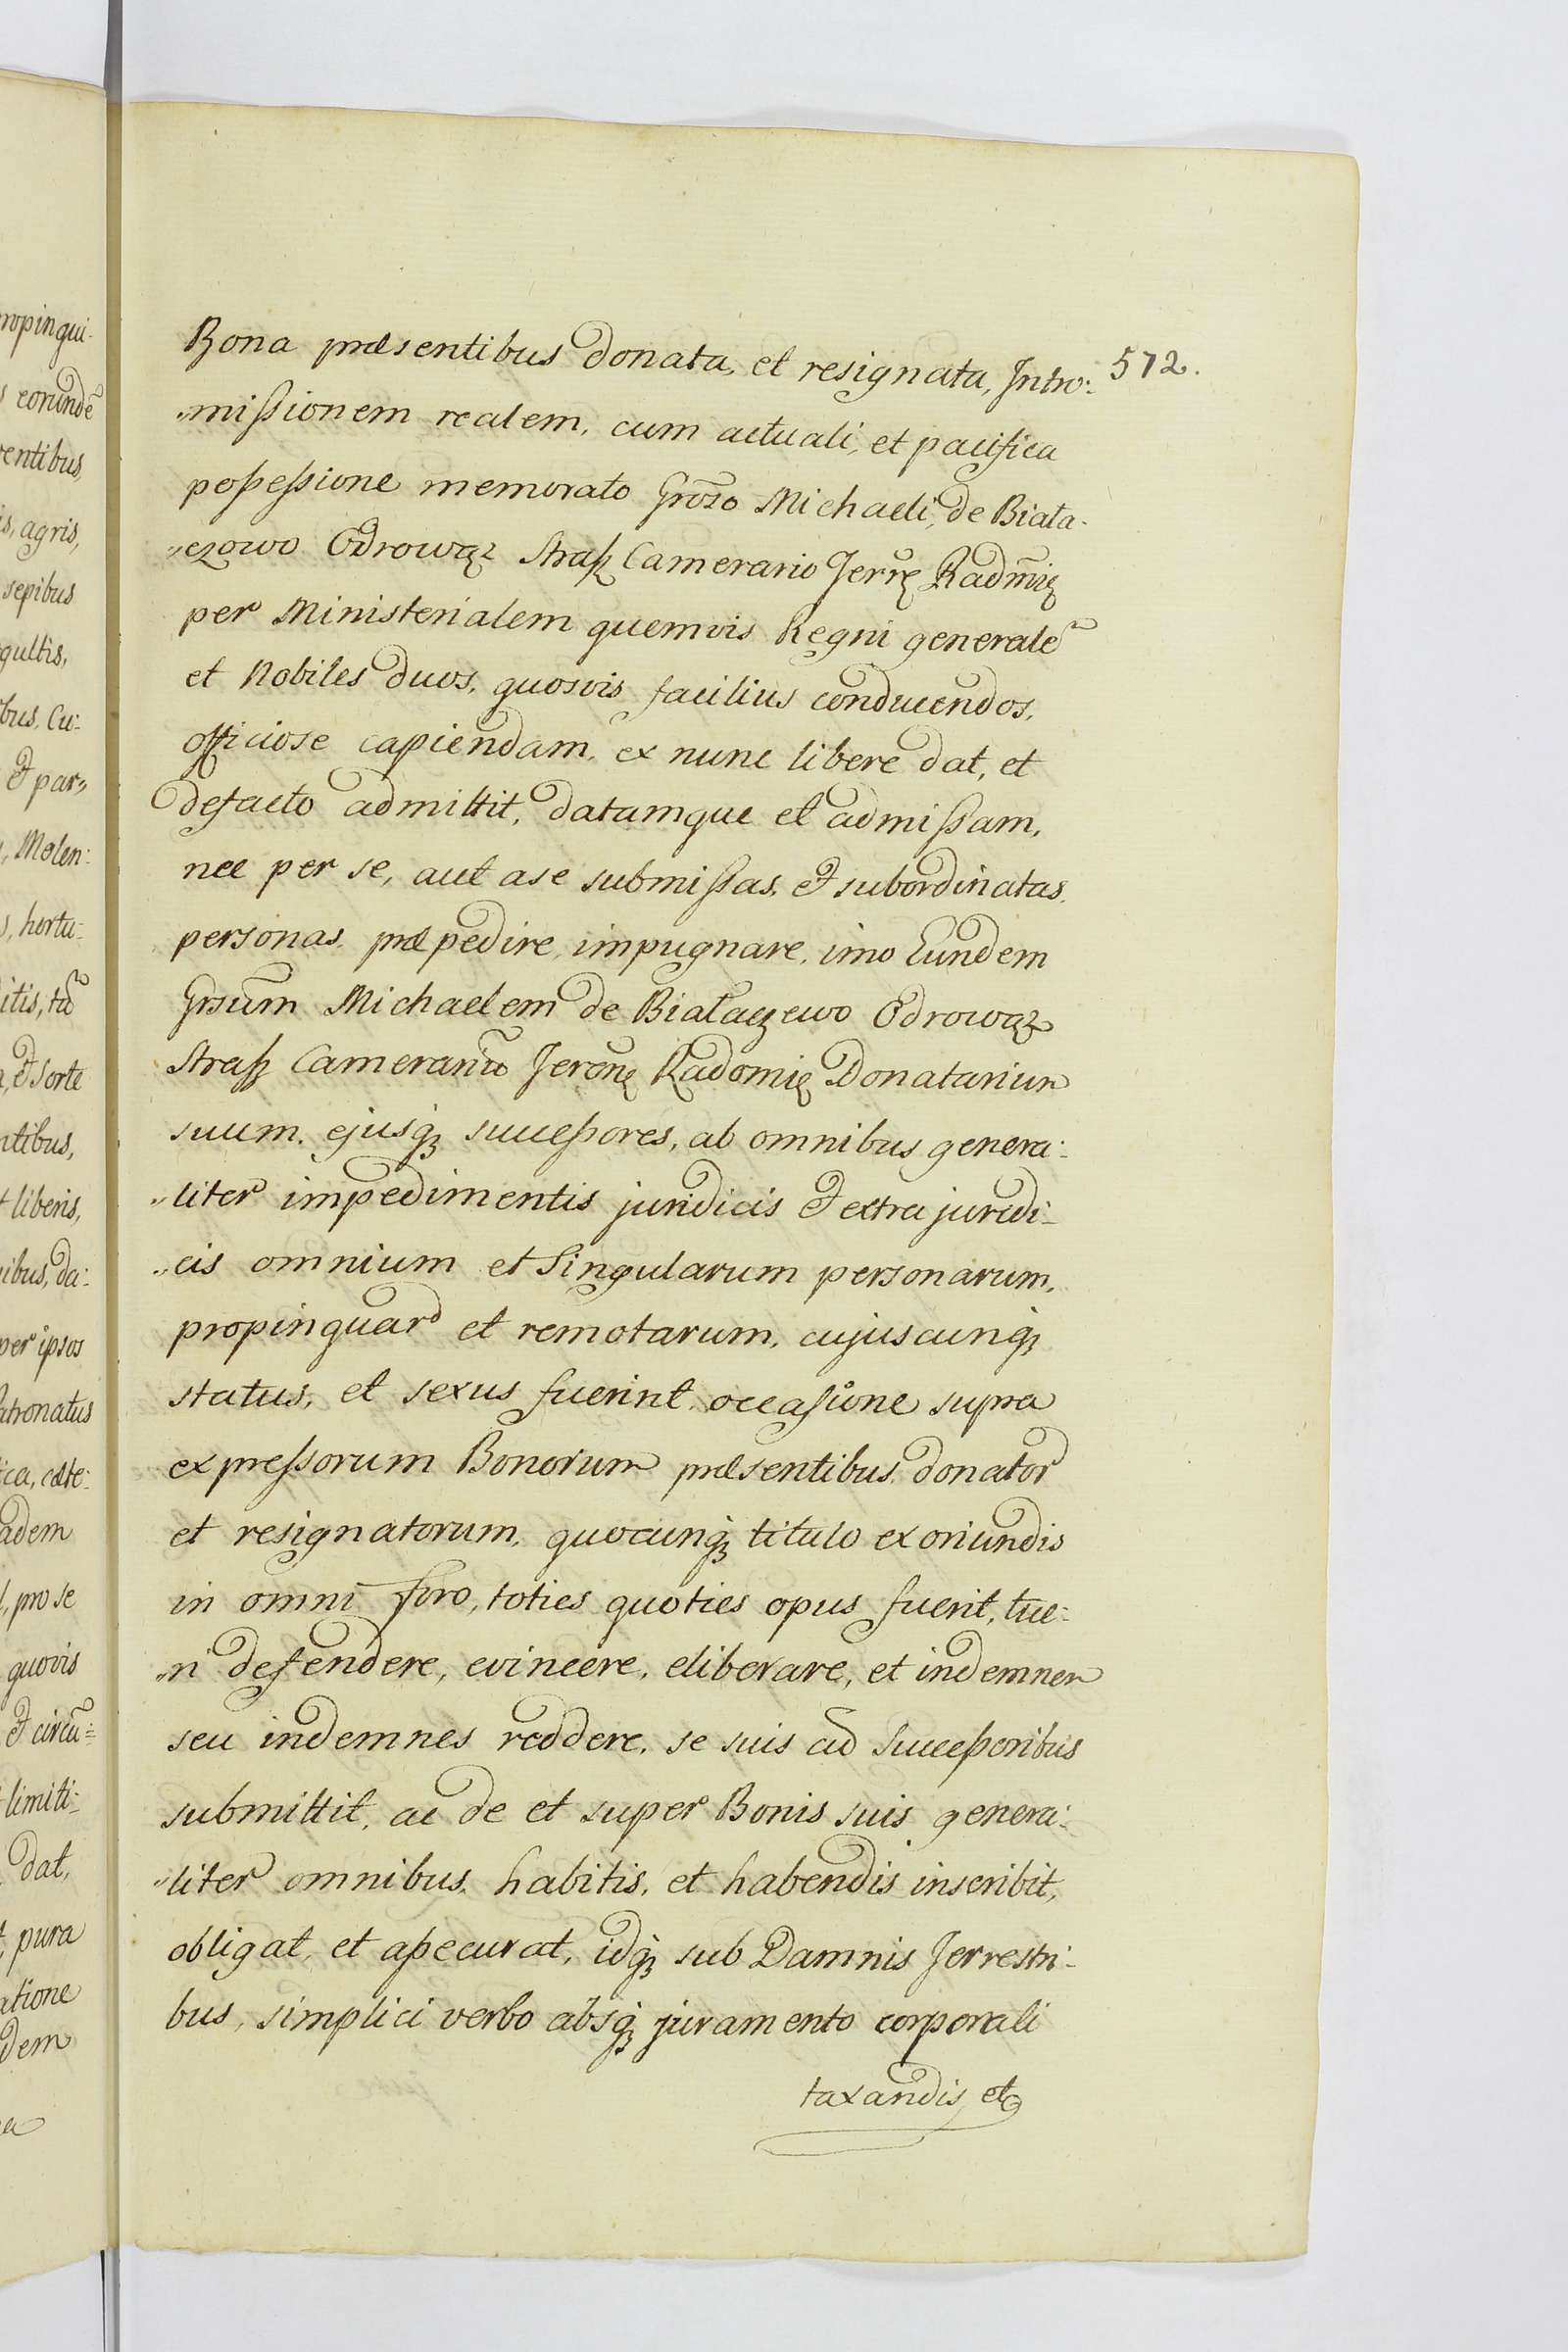 572.
Bona præsentibus donata, et resignata, Intro:
„missionem realem, cum actuali, et pacifica
possessione memorato Grōso Michaeli, de Biała-
„czowo Odrowąz Strasz Camerario Terrę Radmię
per Ministerialem quemvis Regni generalē
et Nobiles duos, quosvis facilius conducendos,
officiose capiendam, ex nunc libere dat, et
defacto admittit, datamque et admissam,
nec per se, aut a se submissas, et subordinatas
personas, præpedire, impugnare, imo Eundem
Grsūm Michaelem de Białaczewo Odrowąz
Strasz Camerariū Terrenę Radomię Donatarium
suum, ejusq; successores, ab omnibus genera:
„liter impedimentis juridicis et extrajuridi:
„cis omnium et Singularum personarum,
propinquar et remotarum, cujuscunq;
status, et sexus fuerint, occasione supra
expressorum Bonorum præsentibus donator
et resignatorum, quocunq; titulo exoriundis
in omni foro, toties quoties opus fuerit, tue:
„ri defendere, evincere, eliberare, et indemnem
seu indemnes reddere, se suis cū Successoribus
submittit, ac de et super Bonis suis genera:
„liter omnibus, habitis, et habendis inscribit,
obligat, et assecurat, idq; sub Damnis Terrestri-
bus, simplici verbo absq; juramento corporali
taxandis, et
ropinqui-
eorundē
rentibus,
is, agris,
sepibus
gultis,
bus, Cu:
et par„
, Molen:
, hortu:
itis, tū
, et Sorte
ntibus,
t liberis,
nibus, da:
per ipsos
atronatus
ica, cæte:
adem
, pro se
quovis
et circū:
limiti:
dat,
, pura
atione
dem